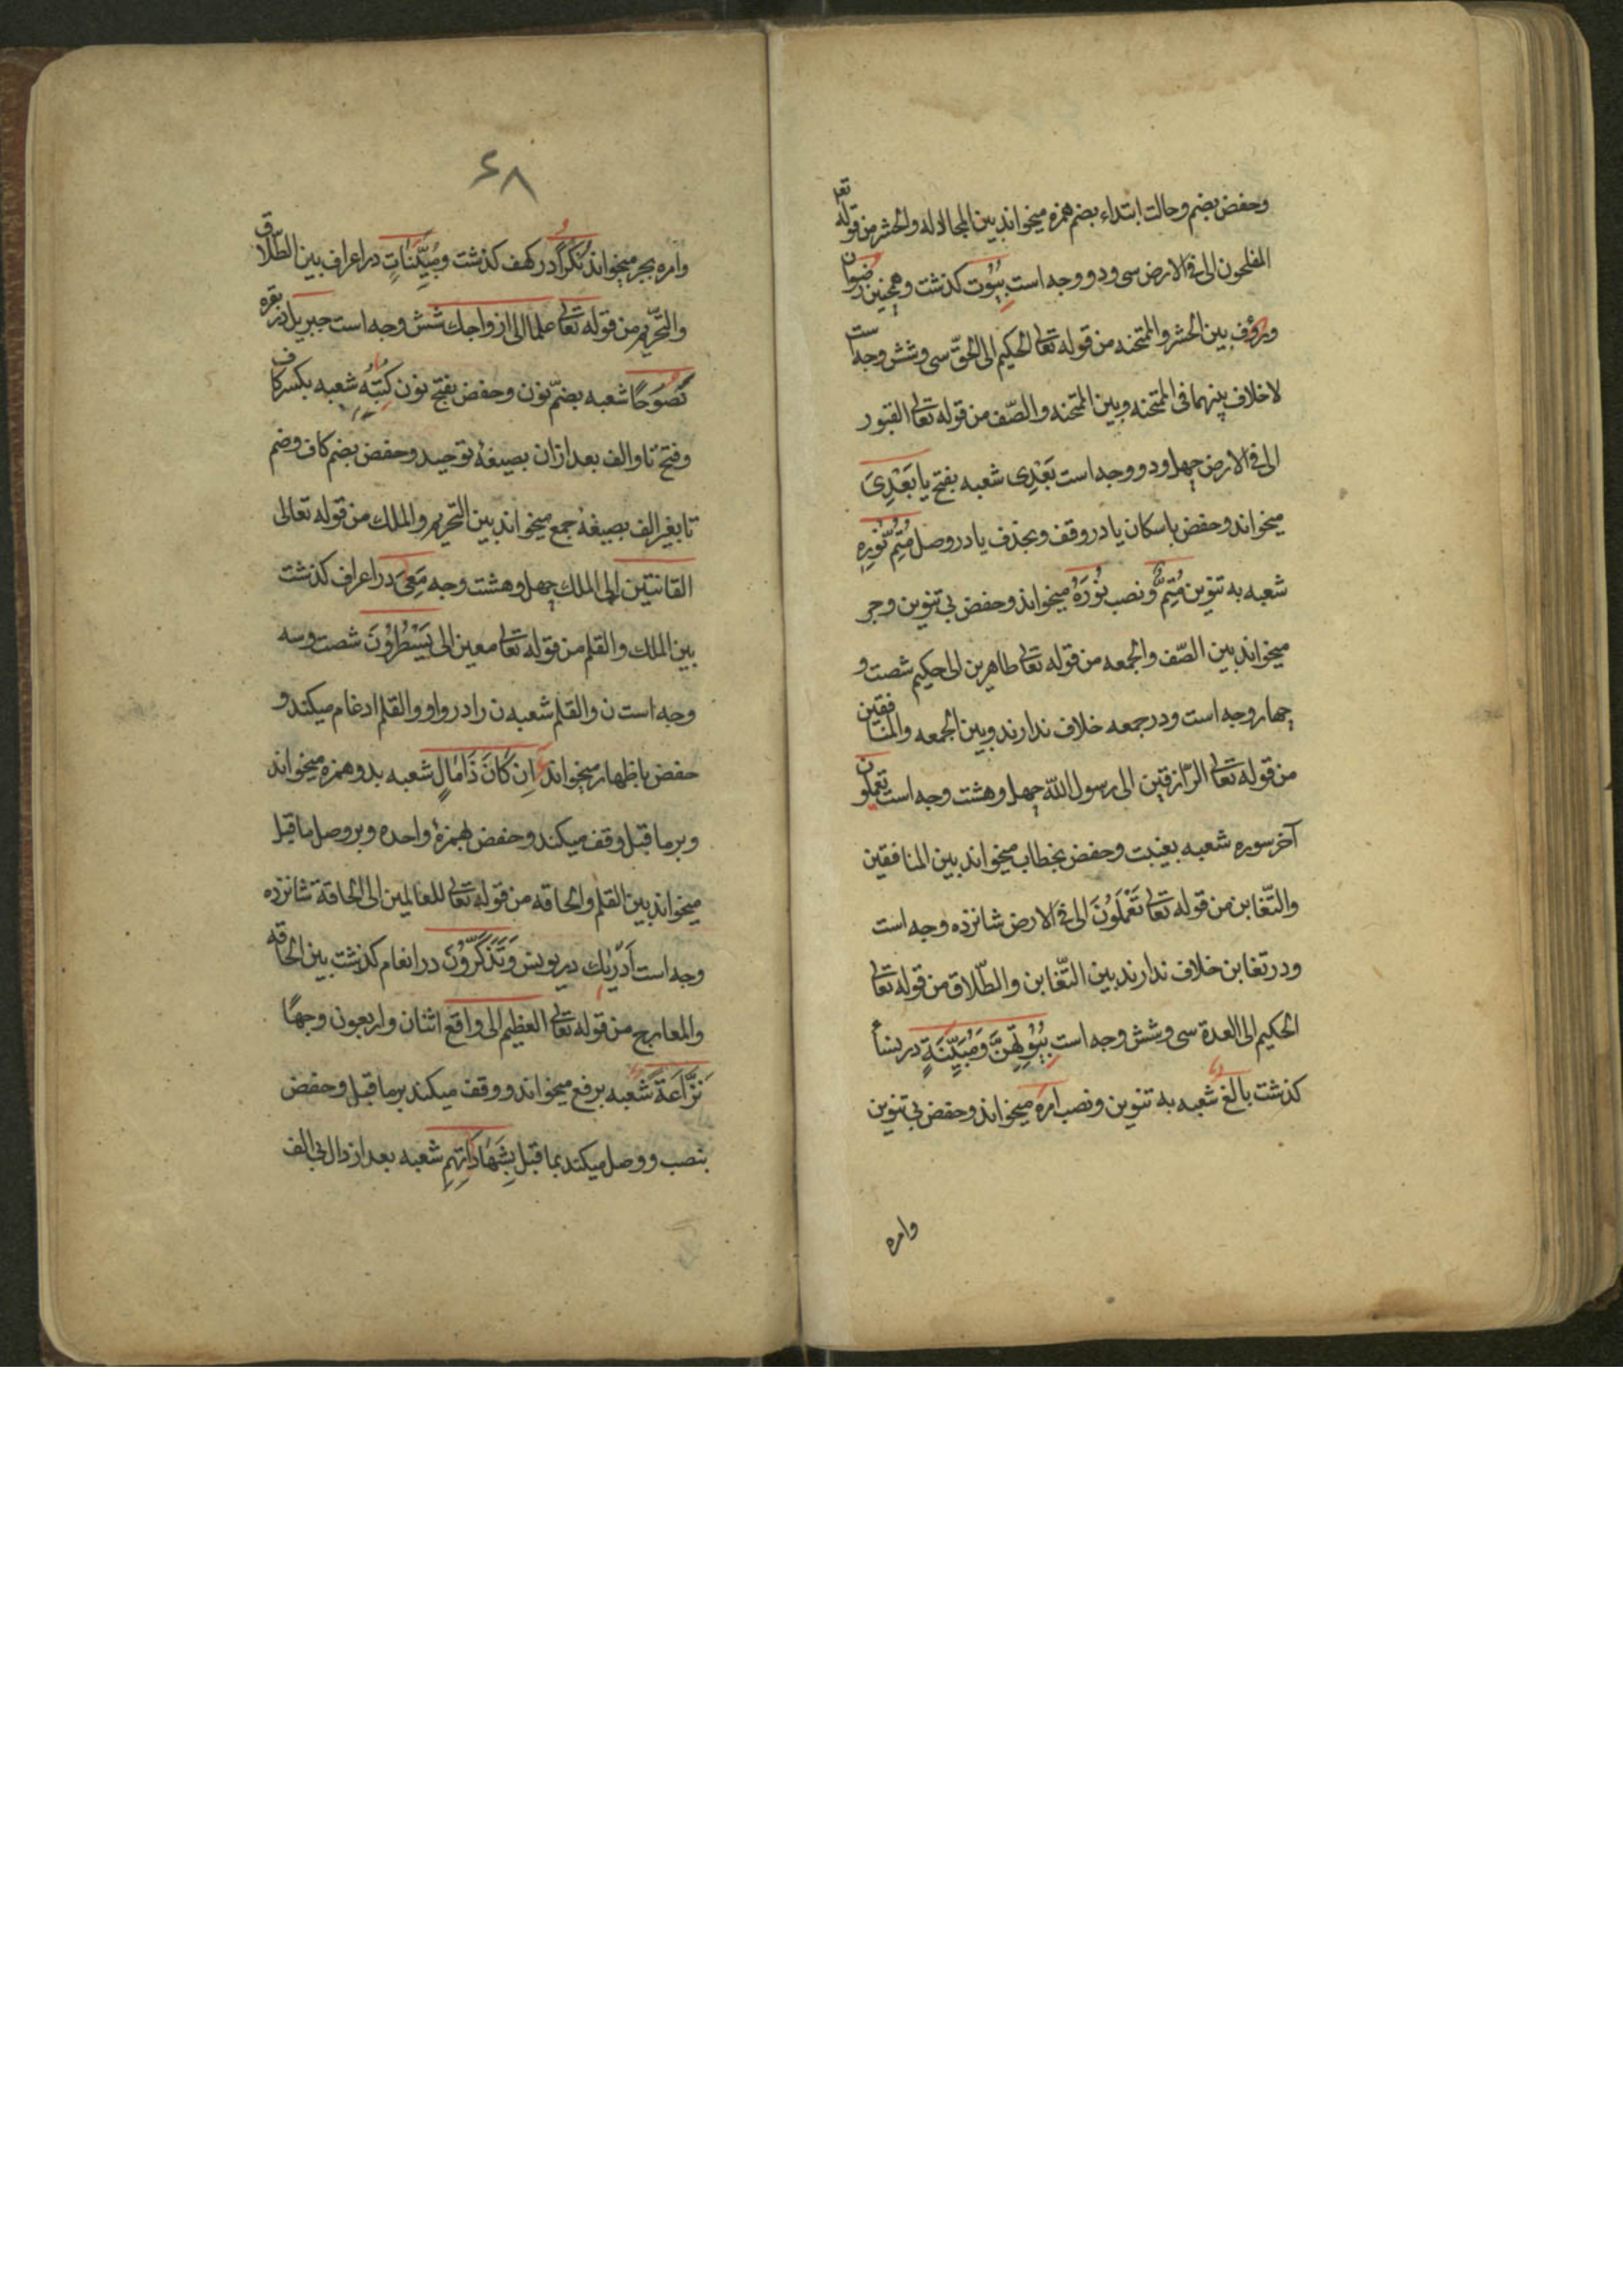 وحفض بضم وحالت ابتداء بضم همزه میخواند بین المجادله والحشر من قوله تعـ
المفلحون الی فی الارض سی ودو وجه است بِیُوت کذشت وهمچنین رضوان
ورؤف بین الحشر والممتحنه من قوله تعالی الحکیم الی الحقّ سی وشش وجه است
لاخلاف بینهما فی الممتحنه وبین الممتحنه والصّف من قوله تعالی القبور
الی فی الارض چهل ودو وجه است بَعْدِی شعبه بفتح یا بَعْدِیَ
میخواند وحفض باسکان یا در وقف وبحذف یا در وصل مُتِمُّ نُورِهِ
شعبه به تنوین مُتِمٌّ ونصب نُورَهُ میخواند وحفض بی تنوین وجر
میخواند بین الصّف والجمعه من قوله تعالی ظاهرین الی حکیم شصت و
چهار وجه است ودر جمعه خلاف ندارند وبین الجمعه والمنافقین
من قوله تعالی الرّازقین الی رسول الله چهل وهشت وجه است تعملون
آخر سوره شعبه بغیبت وحفض بخطاب میخواند بین المنافقین
والتّغابن من قوله تعالی تَعْمَلُونَ الی فی الارض شانزده وجه است
ودر تغابن خلاف ندارند بین التّغابن والطّلاق من قوله تعالی
الحکیم الی العدة سی وشش وجه است بِیُوتِهِنَّ وَمُبَیِّنَةٍ در نسأ
کذشت بالغ شعبه به تنوین ونصب امره میخواند وحفض بی تنوین
وامره
۶۸
وامره بجر میخواند نُکُراً در کهف کذشت ومُبَیِّنَاتٍ در اعراف بین الطّلاق
والتّحریم من قوله تعالی علما الی ازواجك شش وجه است جبریل در بقره
نَصُوحًا شعبه بضمّ نون وحفض بفتح نون کُتُبِهُ شعبه بکسر کاف
وفتح تا والف بعد ازان بصیغهٔ توحید وحفض بضم کاف وضم
تا بغیر الف بصیغهٔ جمع میخواند بین التّحریم والملك من قوله تعالی
القانتین الی الملك چهل وهشت وجه مَعِیَ در اعراف کذشت
بین الملك والقلم من قوله تعالی معین الی یَسْطُرُونَ شصت وسه
وجه است ن والقلم شعبه ن را در واو والقلم ادغام میکند و
حفض باظهار میخواند اِن کَانَ ذَامَالٍ شعبه بدو همزه میخواند
وبر ما قبل وقف میکند وحفض بهمزهٔ واحده وبر وصل ما قبل
میخواند بین القلم والحاقه من قوله تعالی للعالمین الی الحاقة شانزده
وجه است اَدْریٰك در یونس وَتَذَکَّرُونَ در انعام کذشت بین الحاقه
والمعارج من قوله تعالی العظیم الی واقع اثنان واربعون وجهًا
نَزَّاعَةً شعبه برفع میخواند ووقف میکند بر ما قبل وحفض
بنصب ووصل میکند بما قبل بِشَهَادَاتِهِم شعبه بعد از دال بی الف